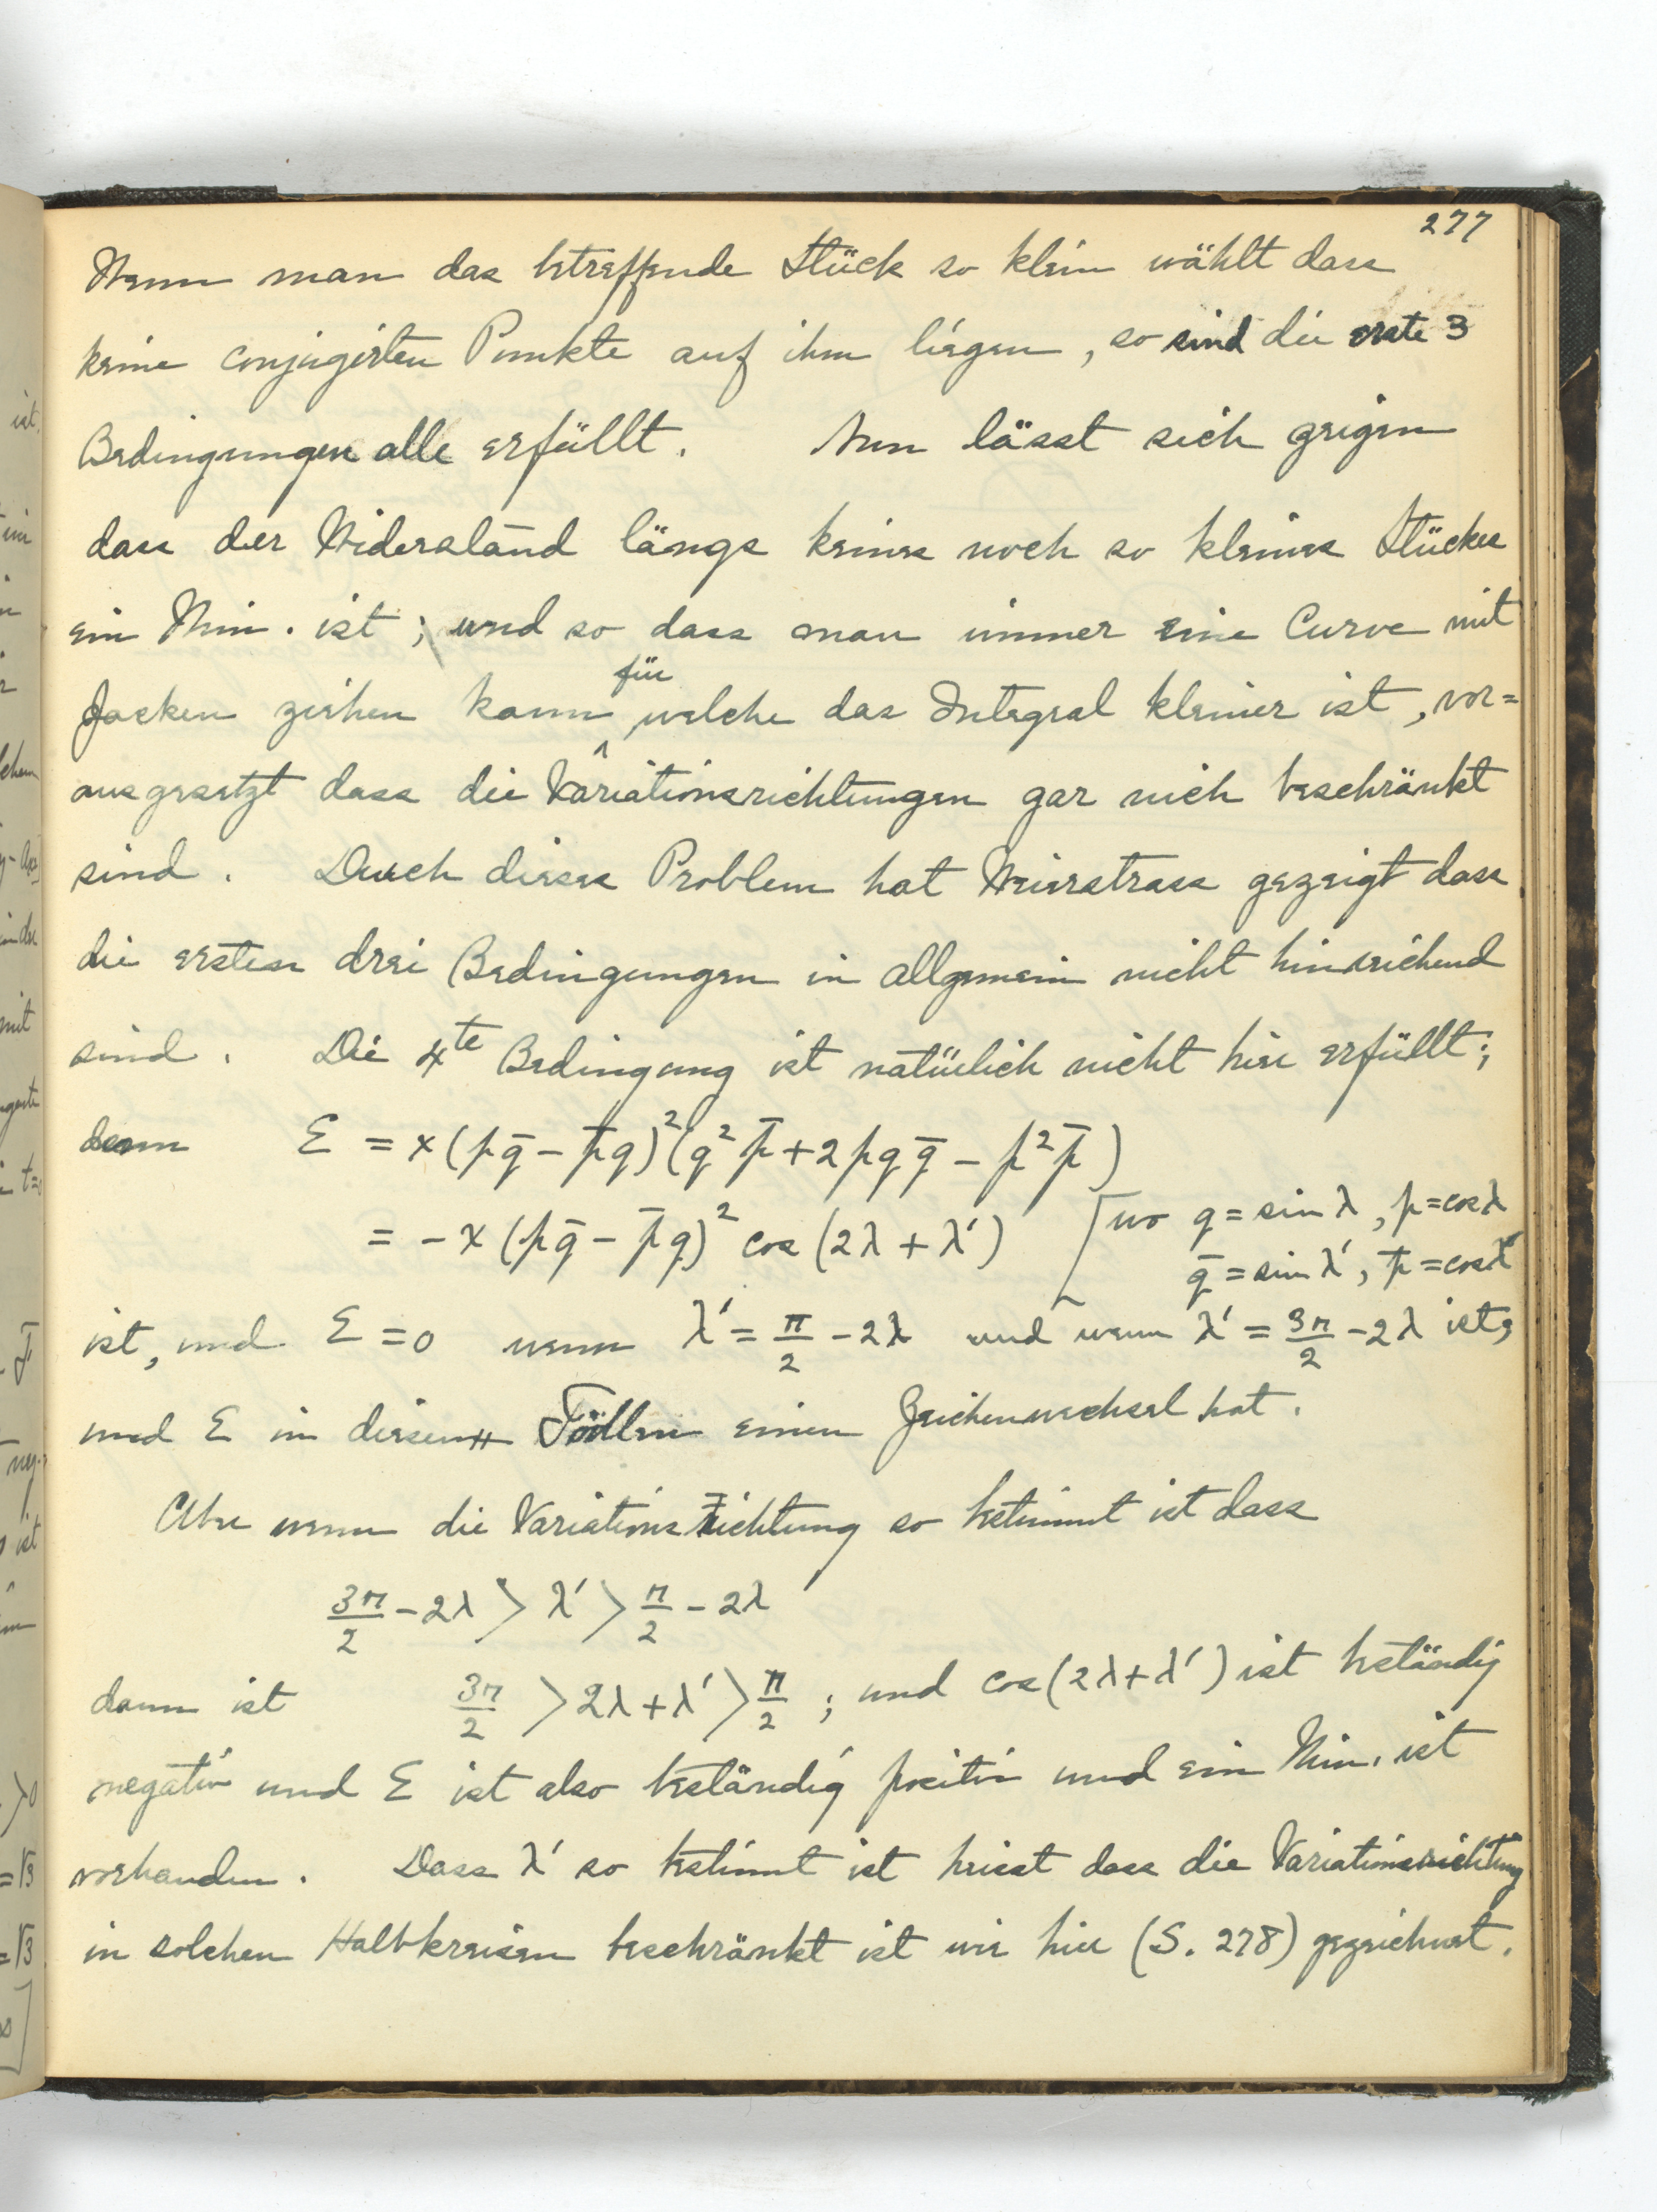 277
Wenn man das betreffende Stück so klein wählt dass
keine conjugirten Punkte auf ihm liegen, so sind die erste 3
Bedingungen alle erfüllt. Nun lässt sich zeigen
dass der Widerstand längs keines noch so kleines Stückes
ein Min. ist; und so dass man immer eine Curve mit
Zacken ziehen kann für welche das Integral kleiner ist, vor=
ausgesetzt dass die Variationsrichtungen gar nich beschränkt
sind. Durch dieses Problem hat Weierstrass gezeigt dass
die ersten drei Bedingungen in allgemein nicht hinreichend
sind. Die 4te Bedingung ist natürlich nicht hier erfüllt;
denn E = x(pq̄ - p̄q)²(q²p̄ + 2pqq̄ - p²p̄)
= -x(pq̄ - p̄q)² cos(2λ + λ') [wo q = sin λ, p = cos λ
q̄ = sin λ', p̄ = cos λ'
ist, und E = 0 wenn λ' = π/2 - 2λ und wenn λ' = 3π/2 - 2λ ist,
und E in diesen Fällen einen Zeichenwechsel hat.
Aber wenn die Variationsrichtung so bestimmt ist dass
3π/2 - 2λ > λ' > π/2 - 2λ
dann ist 3π/2 > 2λ + λ' > π/2 ; und cos(2λ + λ') ist beständig
negativ und E ist also beständig positiv und ein Min. ist
vorhanden. Dass λ' so bestimmt ist heisst dass die Variationsrichtung
in solchen Halbkreisen beschränkt ist wie hier (S. 278) gezeichnet.